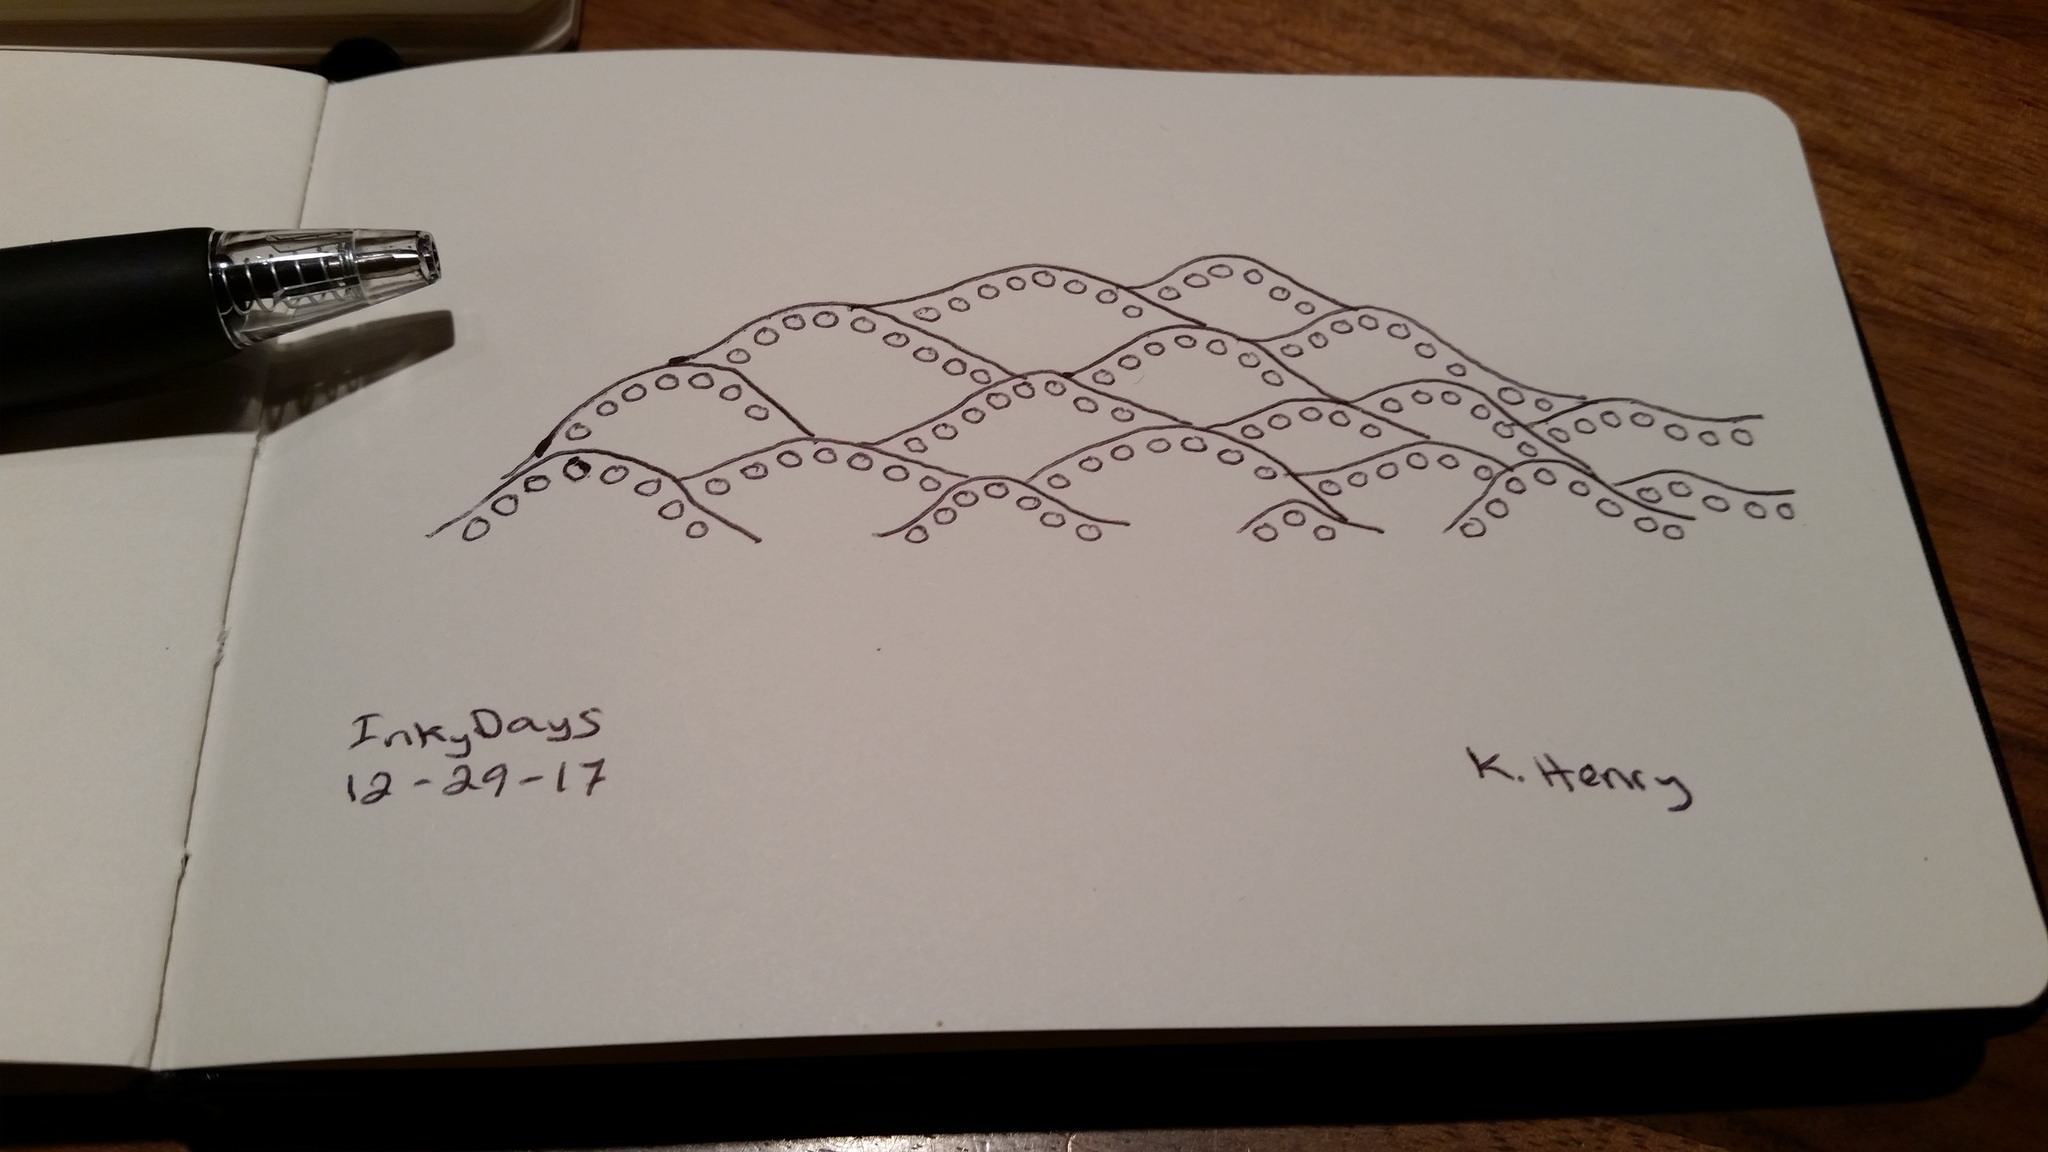 InkyDays
12-29-17
K. Henry